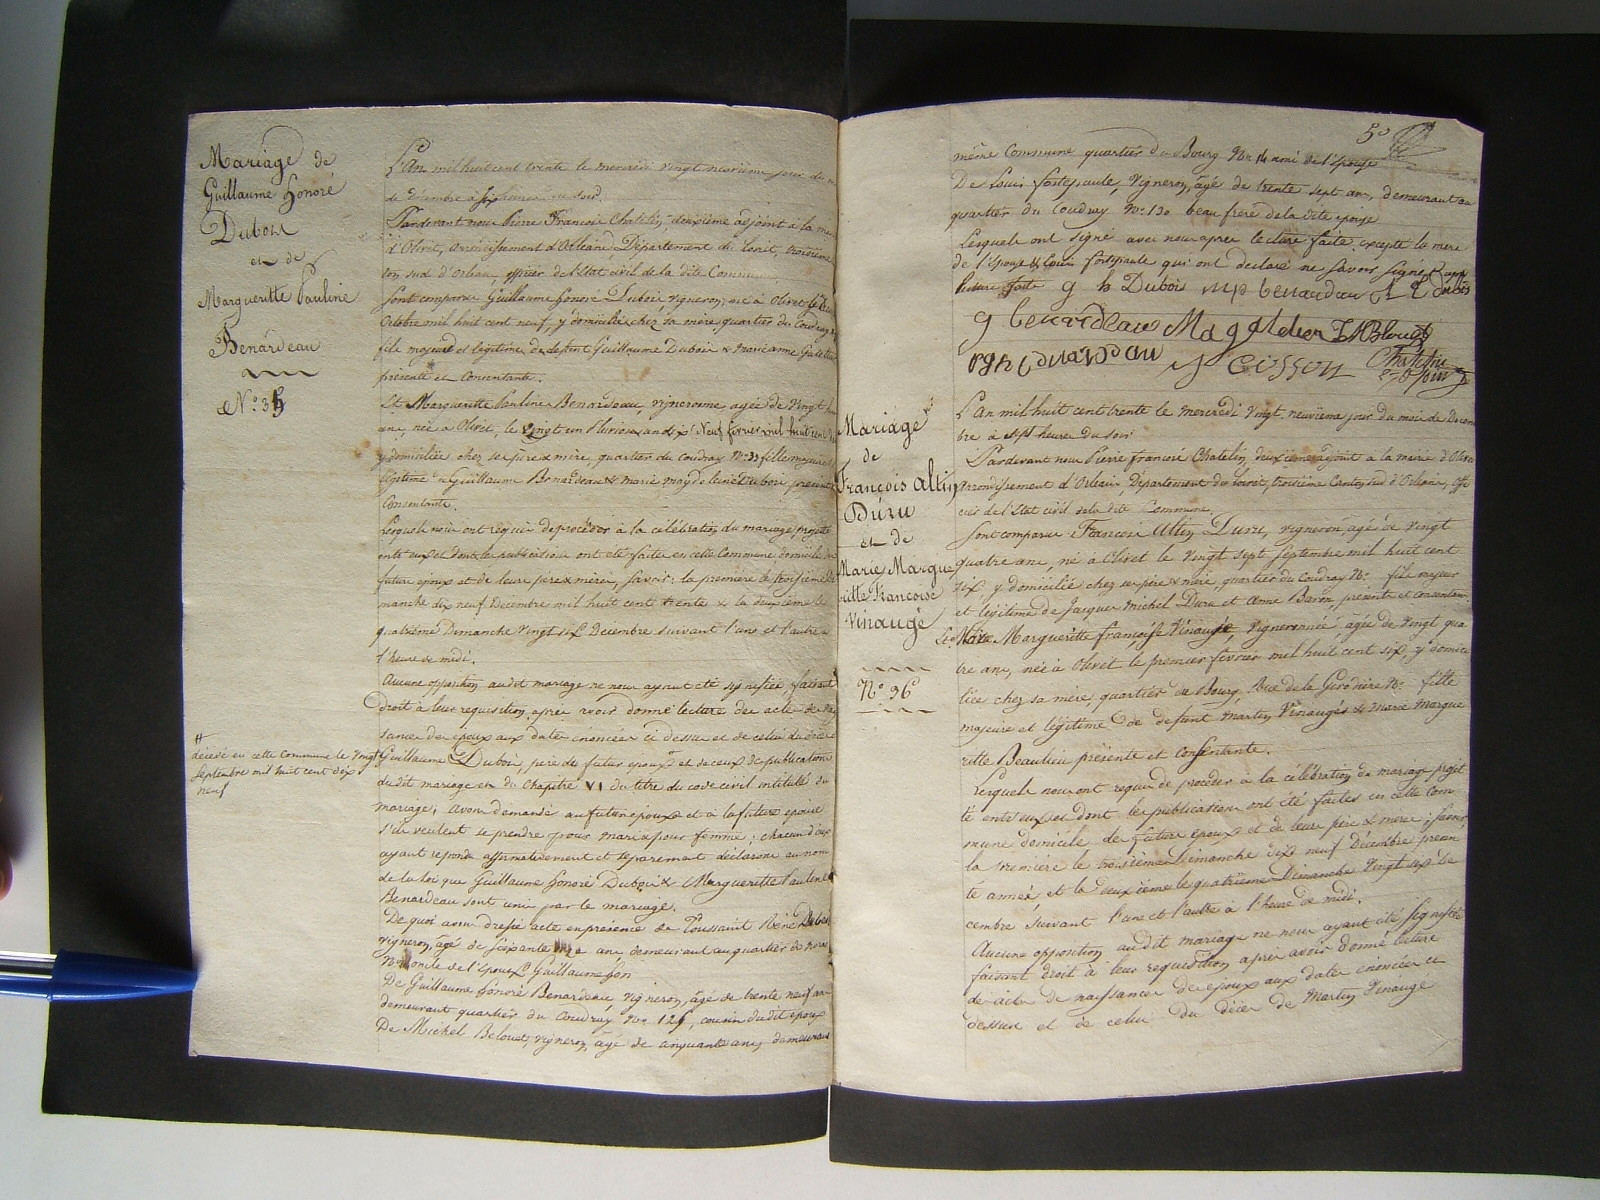 Mariage de
Guillaume honoré
Dubois
et de
Margueritte Pauline
Benardeau
N° 35
L'An mil huit cent trente le mercredi vingt neuvième jour du
de Décembre à six heures du soir.
Pardevant nous Pierre François Chatelin, deuxième adjoint à la
d'Olivet, arrondissement d'Orléans, Département du Loiret, troisième
ton sud d'Orléans, officier de l'Etat civil de la dite Commune
Sont comparus Guillaume honoré Dubois vigneron, né à Olivet le
Octobre mil huit cent neuf, y domicilié chez sa mère, quartier du Coudray
fils majeur et légitime de défunt Guillaume Dubois & Marianne
présente et Consentante.
Et Margueritte Pauline Benardeau, vigneronne agée de vingt
ans, née à Olivet, le vingt un Pluviose an dix Neuf fevrier mil huit cent
y domiciliée chez ses père & mère, quartier du Coudray N° 33 fille majeure
légitime de Guillaume Benardeau & marie magdeleine Dubois présents
Consentants.
Lesquels nous ont requis de procéder à la célébration du mariage projetté
entr'eux et dont les publications ont été faites en cette Commune domicile de
futurs époux et de leurs père & mère, savoir: la première le troisième
manche dix neuf Décembre mil huit cent trente & la deuxième le
quatrième Dimanche vingt six Décembre suivant l'une et l'autre à
l'heure de midi.
Aucune opposition audit mariage ne nous ayant été signifiée, faisant
droit à leur requisition, après avoir donné lecture des actes de
sance des époux aux dates énoncées ci dessus et de celui du décès de
Guillaume Dubois, père du futur époux # et de ceux de publication
du dit mariage et du Chapitre VI du titre du code civil intitulé du
mariage; Avons demandé au futur époux et à la future épouse
s'ils veulent se prendre pour mari & pour femme; chacun d'eux
ayant répondu affirmativement et séparement déclarons au nom
de la loi que Guillaume honoré Dubois & Margueritte Pauline
Benardeau sont unis par le mariage.
De quoi avons dressé acte en présence de Toussaint René Dubois
vigneron, âgé de soixante ans demeurant au quartier de
oncle de l'époux & Guillaume
De Guillaume honoré Benardeau, vigneron, âgé de trente neuf ans
demeurant quartier du Coudray N° 125, cousin dudit époux
De Michel Belouet, vigneron, âgé de cinquante ans, demeurant
#
décédé en cette commune le vingt
septembre mil huit cent dix
neuf
50
même Commune quartier du Bourg N° 14 ami de l'épouse
De Louis fortepaule, vigneron, âgé de trente sept ans, demeurant au
quartier du Coudray N° 130 beau frère de la dite épouse
Lesquels ont signé avec nous après lecture faite, excepté la mère
de l'épouse & Louis fortepaule qui ont déclaré ne savoir signer
lecture faite g h Dubois m p benardeau
g benardeau Magdelen Blouet
benardeau Cosson Chatelin
adjoint
Mariage
de
François Altin
Duru
et de
Marie Margue
ritte Francoise
Vinaugé
N° 36
L'an mil huit cent trente le mercredi vingt, neuvieme jour du mois de Decem
bre à sept heures du soir
Pardevant nous Pierre françois Chatelin, deuxieme adjoint à la mairie d'Olivet
arrondissement d'Orléans, Département du Loiret, troisième Canton sud d'Orléans, offi
cier de l'Etat civil de la dite Commune.
Sont comparus François Altin Duru, vigneron âgé de vingt
quatre ans, né à Olivet le vingt sept septembre mil huit cent
six, y domicilié chez ses père & mère, quartier du Coudray N° fils majeur
et légitime de Jacques Michel Duru et Anne Baron, présents et consentans
Et Marie Margueritte françoise Vinaugé, vigneronne agée de vingt qua
tre ans, née à Olivet le premier fevrier mil huit cent six, y domici
liée chez sa mère, quartier du Bourg, Rue de la Girodière N° fille
majeure et légitime de défunt Martin Vinaugé & Marie Margue
ritte Beaulieu présente et consentante.
Lesquels nous ont requis de procéder à la célébration du mariage projet
té entr'eux et dont les publications ont été faites en cette Com
mune domicile des futurs époux et de leurs père & mère; savoir
la première le troisième Dimanche dix neuf Décembre présen
te année, et la deuxième le quatrième Dimanche vingt six De
cembre suivant l'une et l'autre à l'heure de midi.
Aucune opposition audit mariage ne nous ayant été signifiée
faisant droit à leur requisition après avoir donné lecture
des actes de naissance des époux aux dates énoncées ci
dessus et de celui du décès de Martin Vinaugé